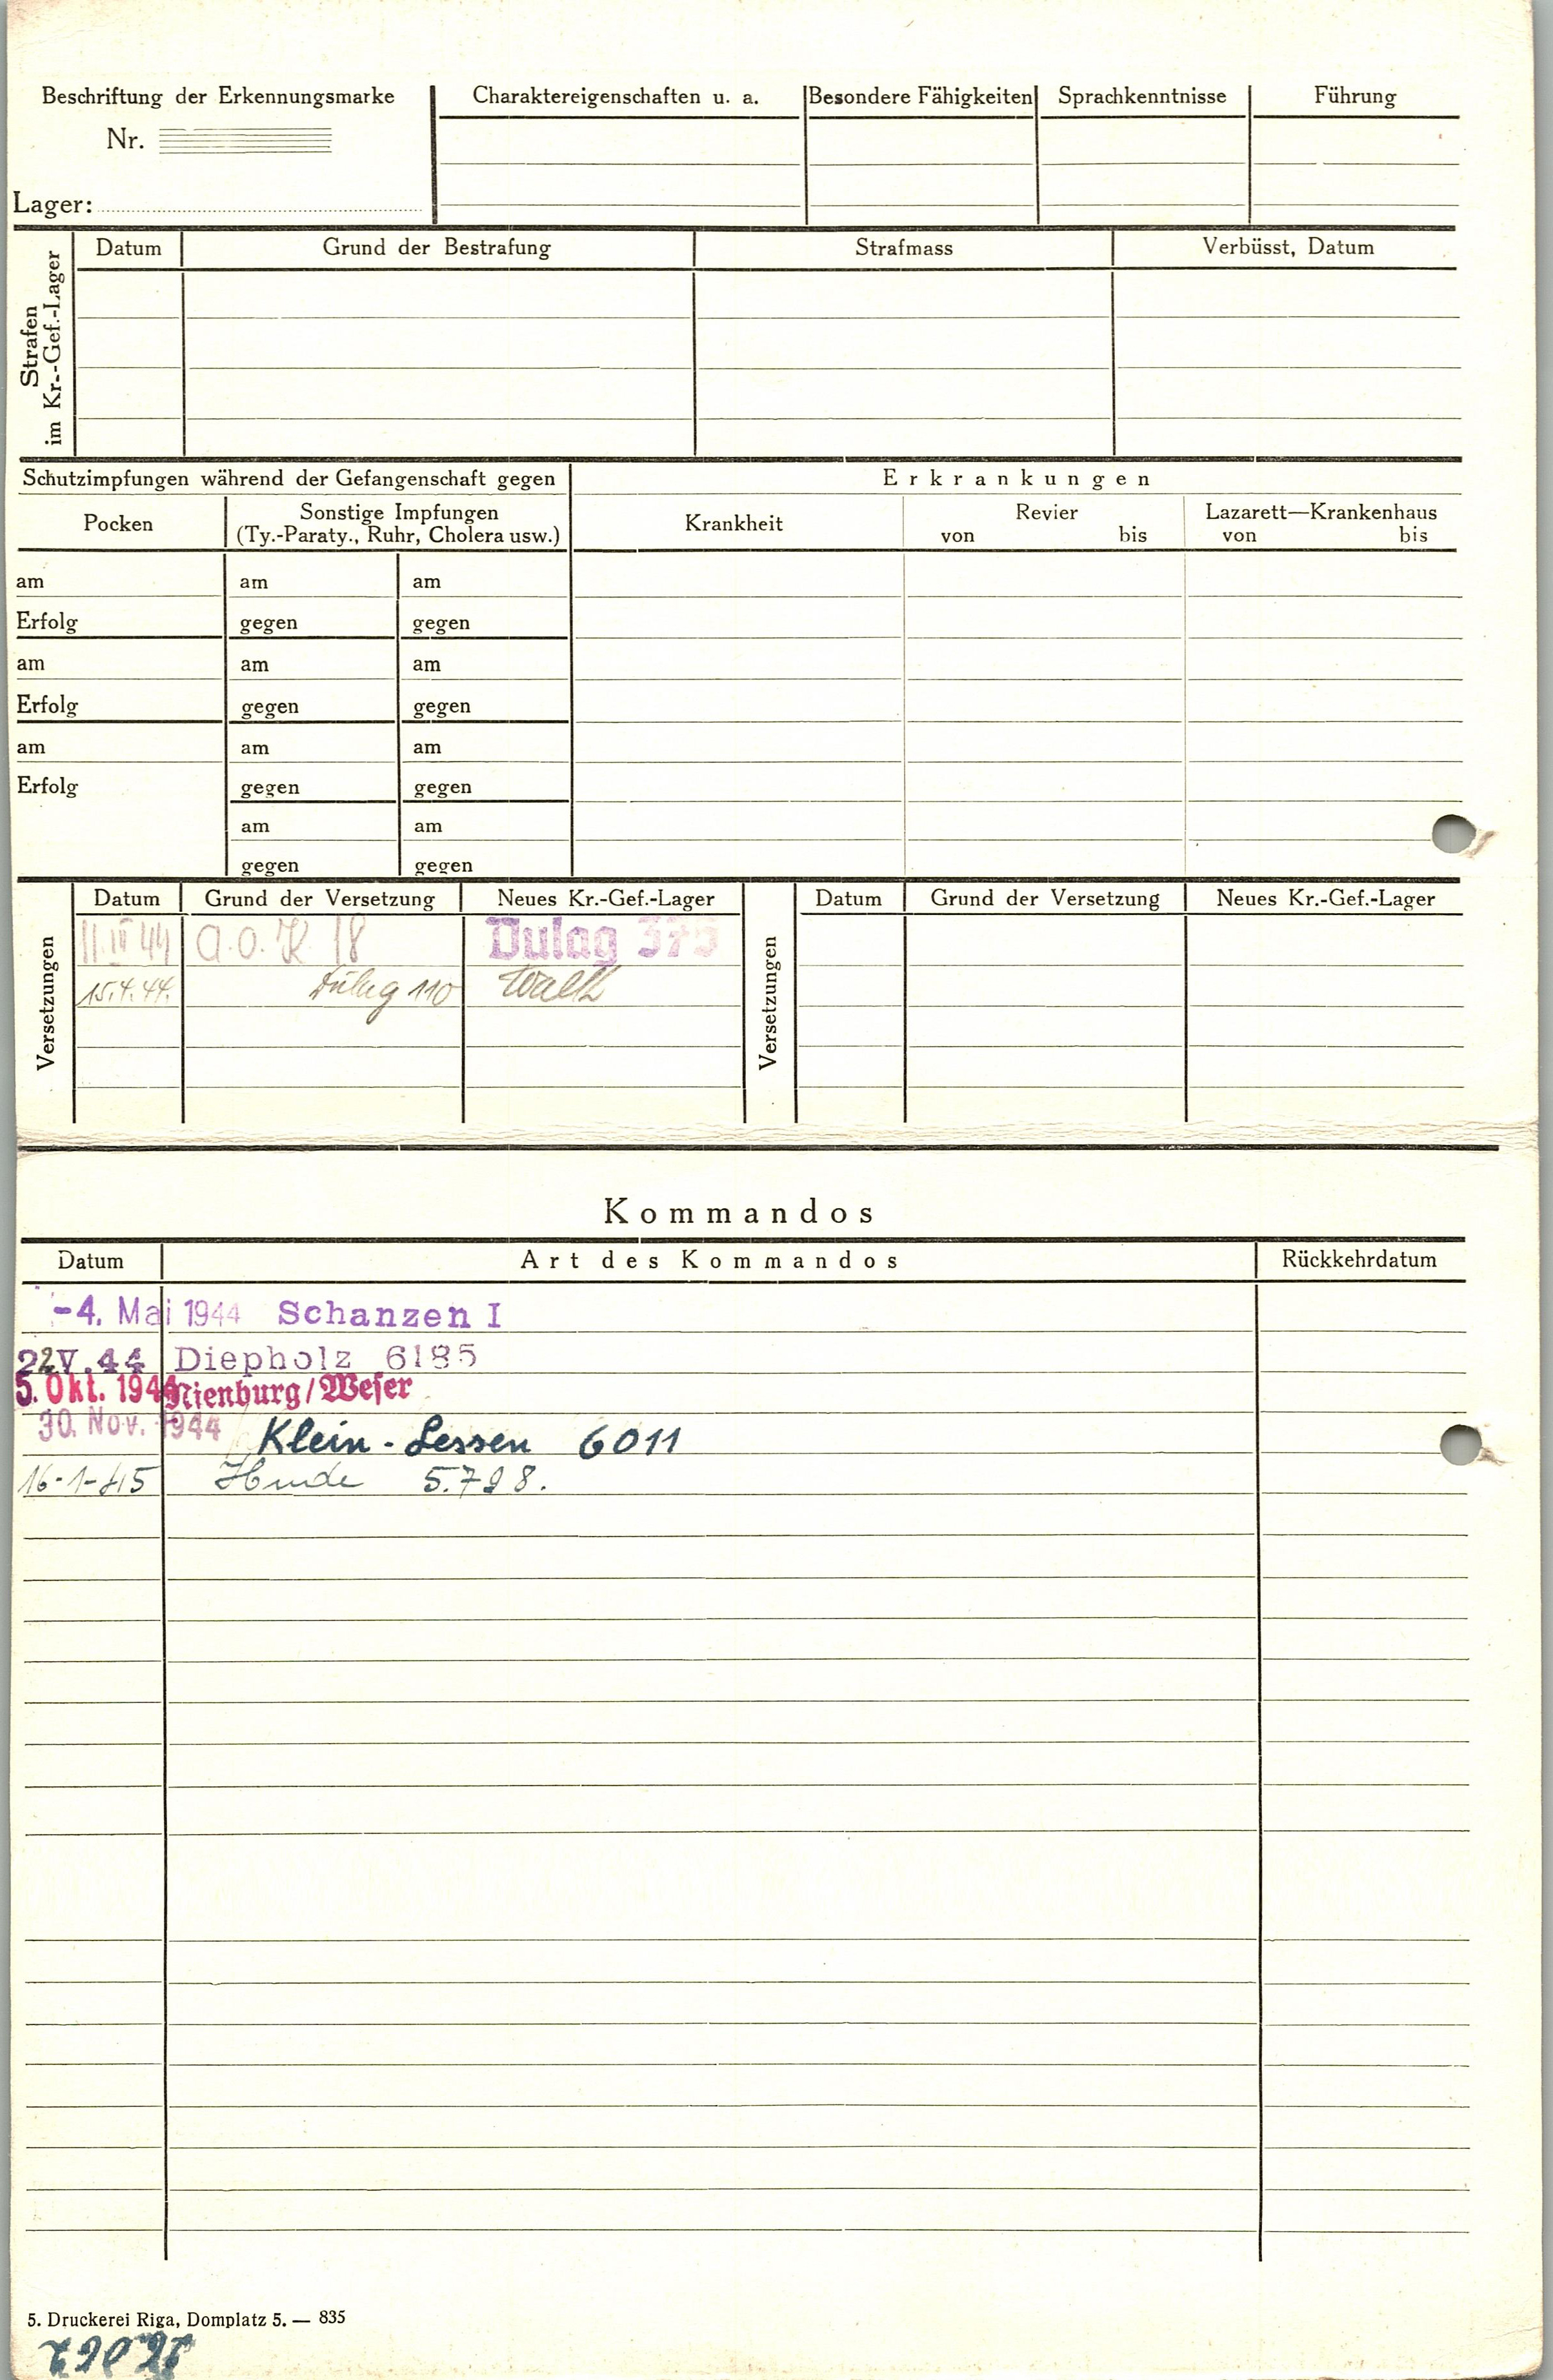 Beschriftung der Erkennungsmarke
Nr.
Lager:
Charaktereigenschaften u. a.
Besondere Fähigkeiten
Sprachkenntnisse
Führung
Strafen
im Kr.-Gef.-Lager
Datum
Grund der Bestrafung
Strafmass
Verbüsst, Datum
Schutzimpfungen während der Gefangenschaft gegen
Erkrankungen
Pocken
Sonstige Impfungen
(Ty.-Paraty., Ruhr, Cholera usw.)
Krankheit
Revier
von bis
Lazarett—Krankenhaus
von bis
am am am
Erfolg gegen gegen
am am am
Erfolg gegen gegen
am am am
Erfolg gegen gegen
am am
gegen gegen
Versetzungen
Datum Grund der Versetzung Neues Kr.-Gef.-Lager
11.III 44 A.O.K 18 Dulag 375
15.4.44. Dulag 110 Walk
Versetzungen
Datum Grund der Versetzung Neues Kr.-Gef.-Lager
Kommandos
Datum Art des Kommandos Rückkehrdatum
-4. Mai 1944 Schanzen I
22.V.44 Diepholz 6185
5. Okt. 1944 Nienburg/Weser
30. Nov. 1944 Klein-Lessen 6011
16-1-45 Hude 5.798.
5. Druckerei Riga, Domplatz 5. — 835